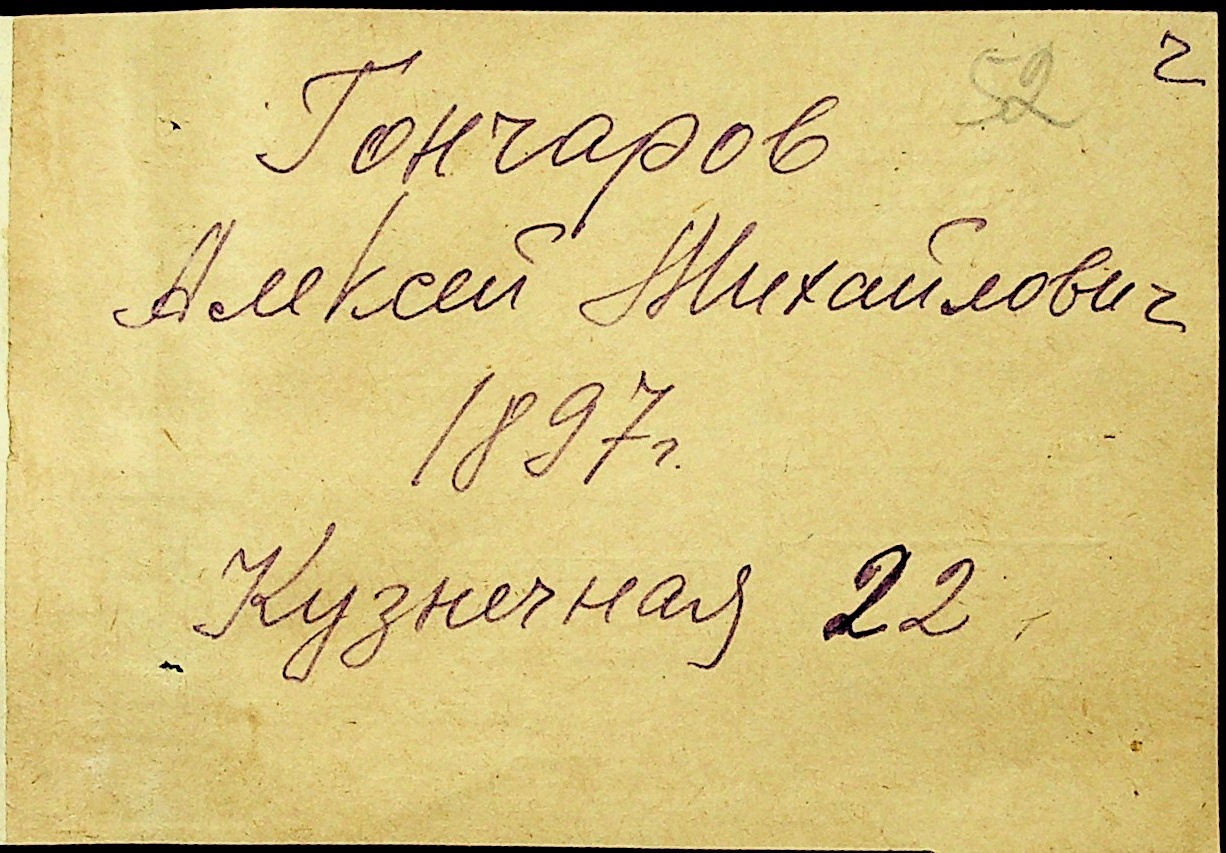 52 ч
Гончаров
Алексей Михайлович
1897г.
Кузнечная 22